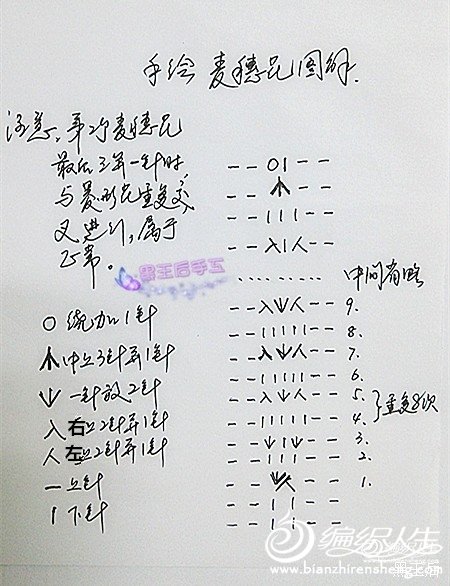 手绘麦穗花图解.
注意、第2次麦穗花
最后3第一针时
与菱形花重复交
叉进行,属于
正常。
O 绕加1针
中上3针并1针
一针放2针
入 右上2针并1针
人 左上2针并1针
一 上针
1 下针
- - O I - -
- - 个 - -
- - I I I - -
- - 入 I 人 - -
........ 中间省略
- - 入 V 人 - - 9.
- - I I I I I - - 8.
- - 入 V 人 - - 7.
- - I I I I I - - 6.
- - 入 V 人 - - 5.
- - I I I I I - - 4.
} 重复8次
- - V I V - - 3.
- - I I I - - 2.
- - V 人 - - 1.
- - I I - -
- - I I - -
编织人生
www.bianzhirensheng.com